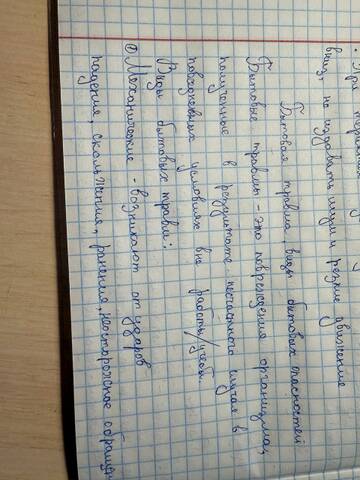 · При
вниз, не издавать шум и резкие движение
Бытовая травма, виды бытовых опасностей
Бытовые травмы - это повреждения организма,
полученные в результате несчастного случая в
повседневных условиях вне работы/учебы.
Виды бытовых травм:
① Механические - возникают от ударов
падения, скольжения, ранения, неосторожное обращен